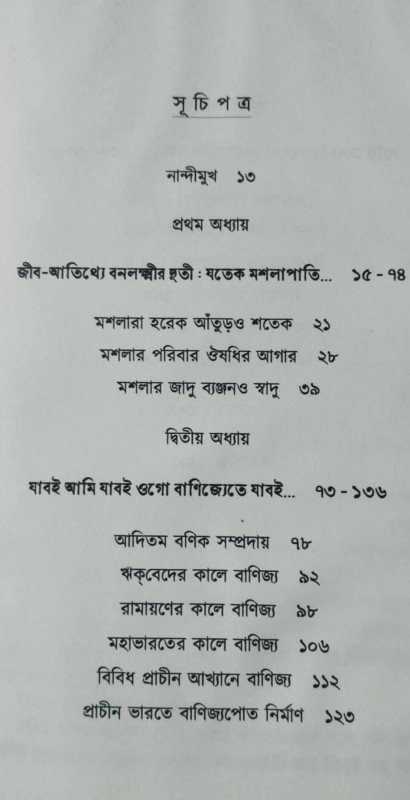 সূচিপত্র
নান্দীমুখ ১৩
প্রথম অধ্যায়
জীব-আতিথ্যে বনলক্ষ্মীর দূতী : যতেক মশলাপাতি... ১৫ - ৭৪
মশলারা হরেক আঁতুড়ও শতেক ২১
মশলার পরিবার ঔষধির আগার ২৮
মশলার জাদু ব্যঞ্জনও স্বাদু ৩৯
দ্বিতীয় অধ্যায়
যাবই আমি যাবই ওগো বাণিজ্যেতে যাবই... ৭৩ - ১৩৬
আদিতম বণিক সম্প্রদায় ৭৮
ঋক্‌বেদের কালে বাণিজ্য ৯২
রামায়ণের কালে বাণিজ্য ৯৮
মহাভারতের কালে বাণিজ্য ১০৬
বিবিধ প্রাচীন আখ্যানে বাণিজ্য ১১২
প্রাচীন ভারতে বাণিজ্যপোত নির্মাণ ১২৩